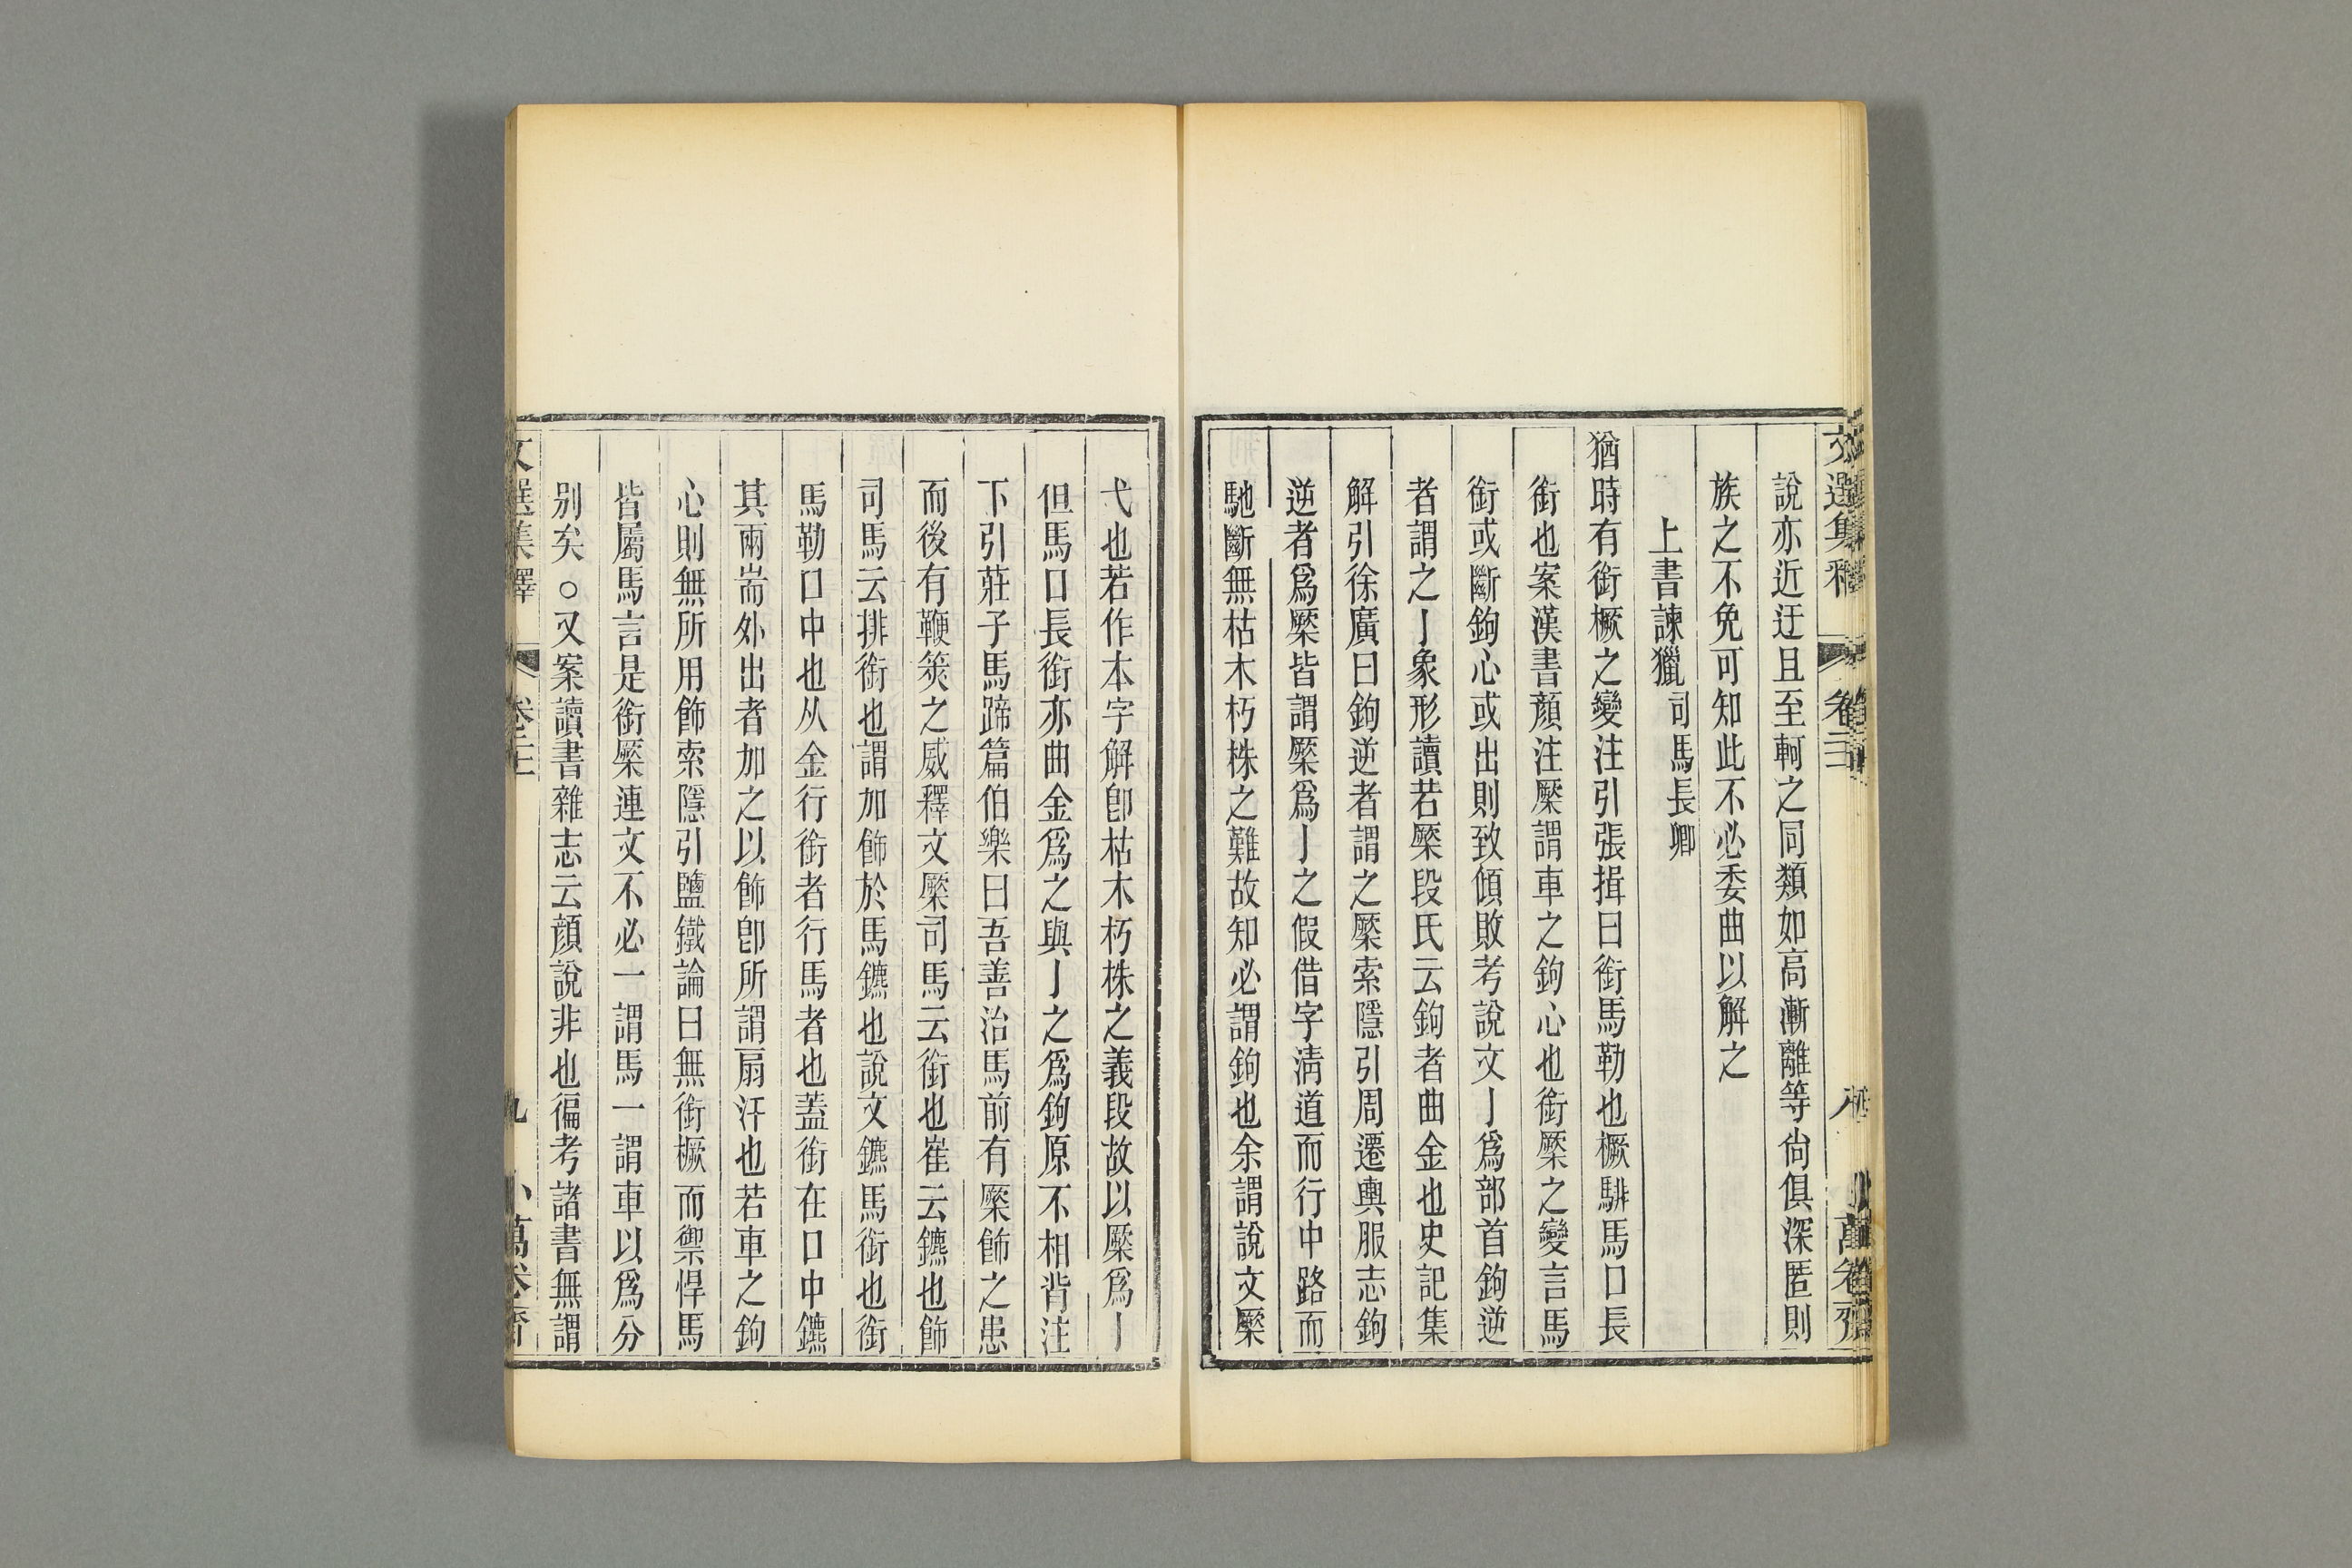 說亦近迂且至軻之同類如高漸離等尙俱深匿則
族之不免可知此不必委曲以解之
上書諫獵司馬長卿
猶時有銜橛之變注引張揖曰銜馬勒也橛騑馬口長
銜也案漢書顏注橜謂車之鉤心也銜橜之變言馬
銜或斷鉤心或出則致傾敗考說文亅爲部首鉤逆
者謂之亅象形讀若橜段氏云鉤者曲金也史記集
解引徐廣曰鉤逆者謂之橜索隱引周遷輿服志鉤
逆者爲橜皆謂橜爲亅之假借字淸道而行中路而
馳斷無枯木朽株之難故知必謂鉤也余謂說文橜
弋也若作本字解卽枯木朽株之義段故以橜爲亅
但馬口長銜亦曲金爲之與亅之爲鉤原不相背注
下引莊子馬蹄篇伯樂曰吾善治馬前有橜飾之患
而後有鞭筴之威釋文橜司馬云銜也崔云鑣也飾
司馬云排銜也謂加飾於馬鑣也說文鑣馬銜也銜
馬勒口中也从金行銜者行馬者也蓋銜在口中鑣
其兩耑外出者加之以飾卽所謂扇汗也若車之鉤
心則無所用飾索隱引鹽鐵論曰無銜橛而禦悍馬
皆屬馬言是銜橜連文不必一謂馬一謂車以爲分
別矣○又案讀書雜志云顏說非也徧考諸書無謂
文選集釋 卷二 九 小萬卷齋